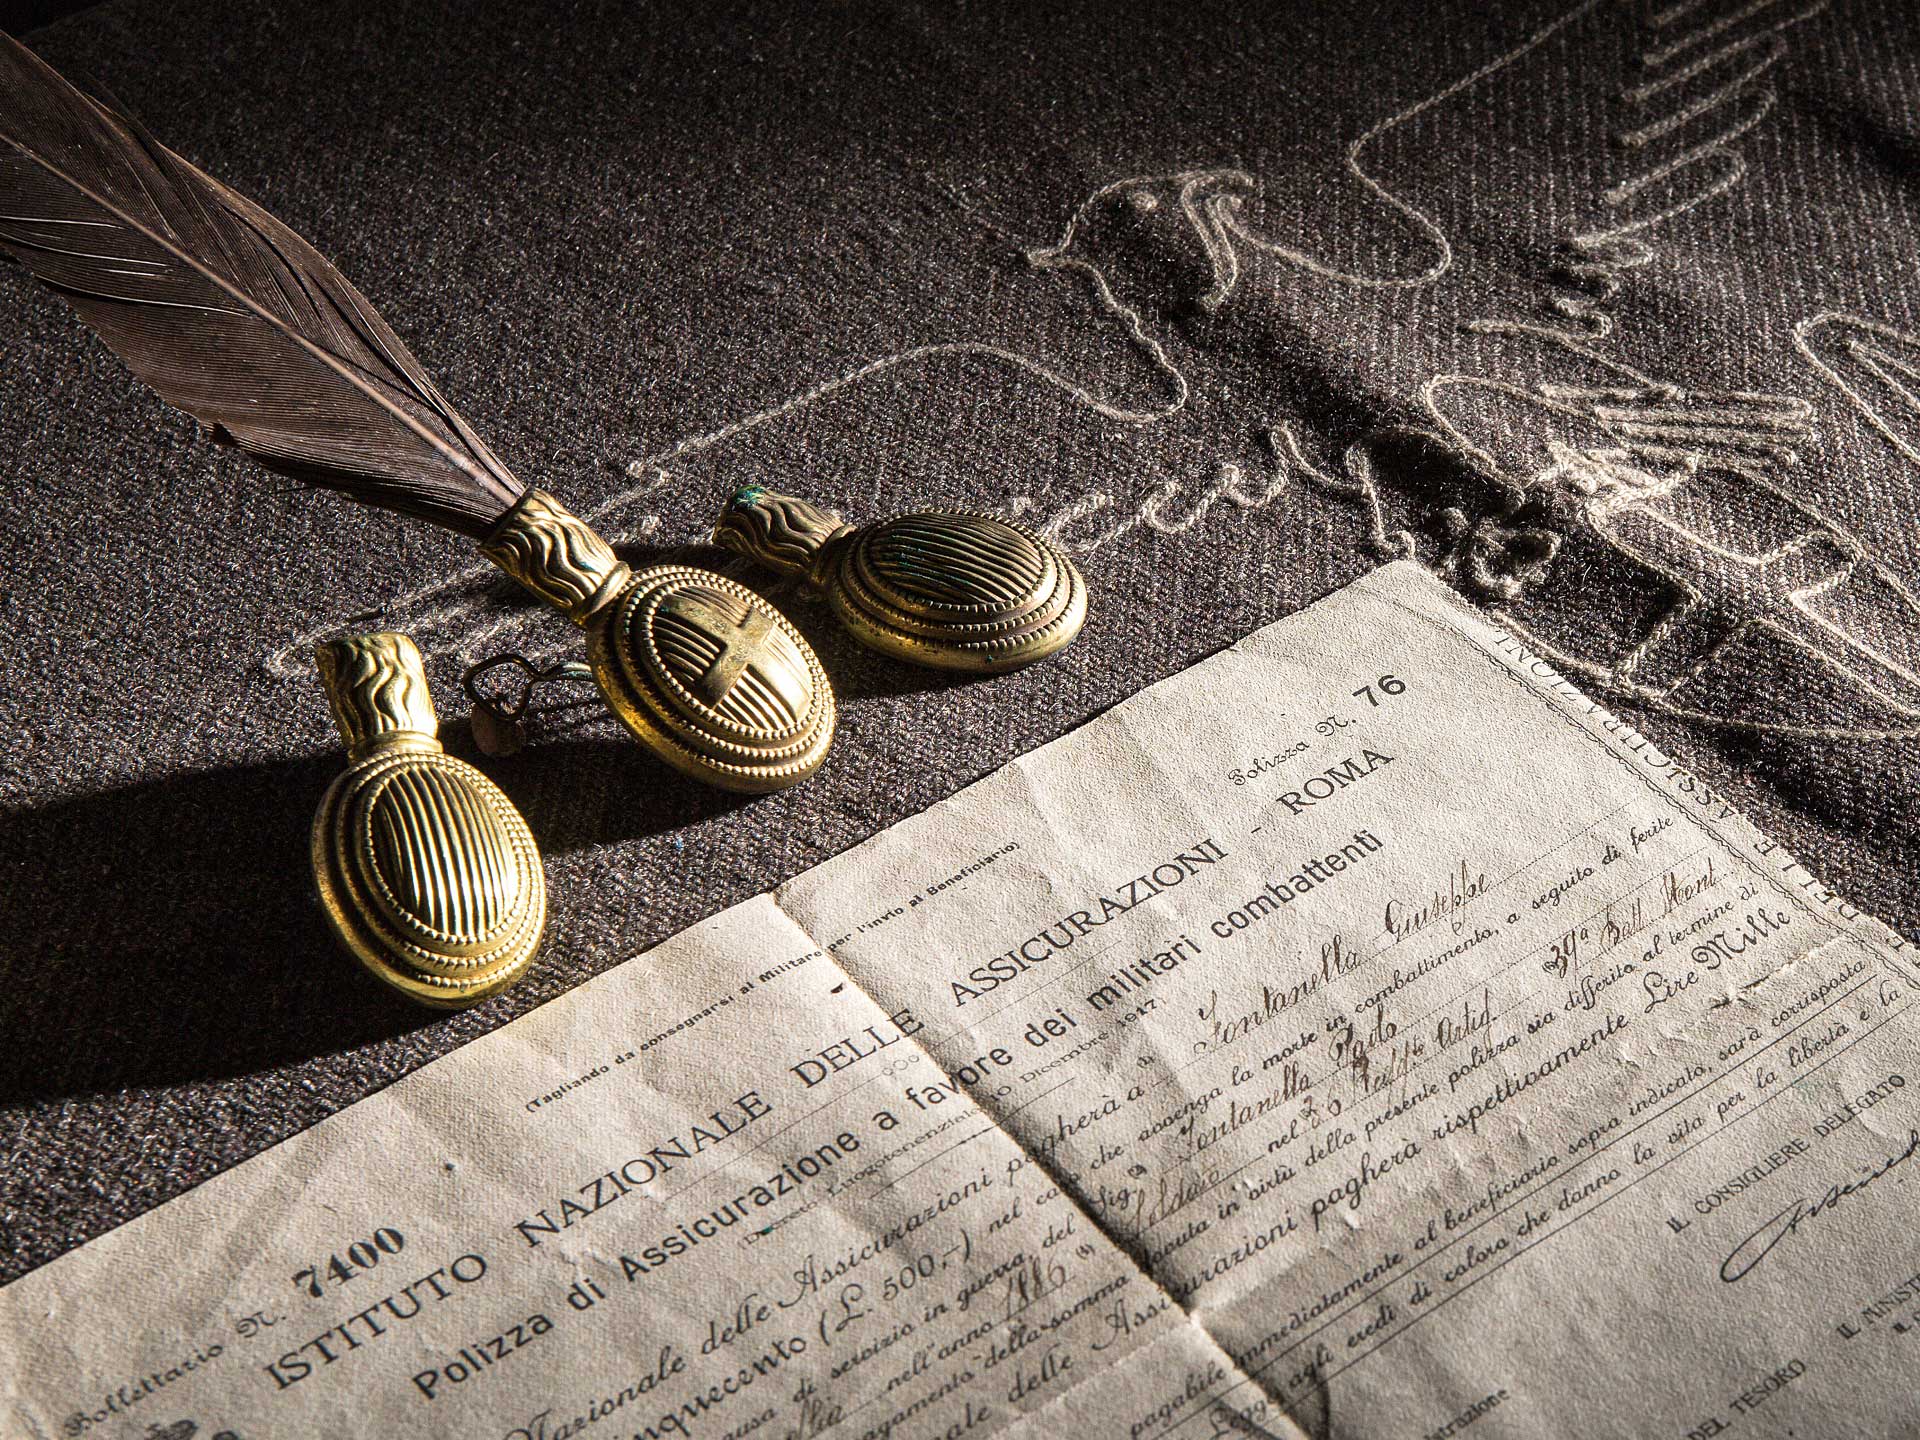 Polizza N. 76
Bollettario N. 7400
(Tagliando da consegnarsi al Militare per l'invio al Beneficiario)
ISTITUTO NAZIONALE DELLE ASSICURAZIONI - ROMA
Polizza di Assicurazione a favore dei militari combattenti
(Decreto Luogotenenziale 10 Dicembre 1917)
Nazionale delle Assicurazioni pagherà a Fontanella Giuseppe
inquecento (L. 500,-) nel caso che avvenga la morte in combattimento, a seguito di ferite
ausa di servizio in guerra, del Sig. Fontanella Paolo
nell'anno 1886 Soldato nel 39ª Batt Mont
pagamento della somma dovuta in virtù della presente polizza sia differita al termine di
nale delle Assicurazioni pagherà rispettivamente Lire Mille
pagabile immediatamente al beneficiario sopra indicato, sarà corrisposta
Legge agli eredi di coloro che danno la vita per la libertà e la
IL CONSIGLIERE DELEGATO
IL MINIST
DEL TESORO
ASSICURAZIONI
DELLE